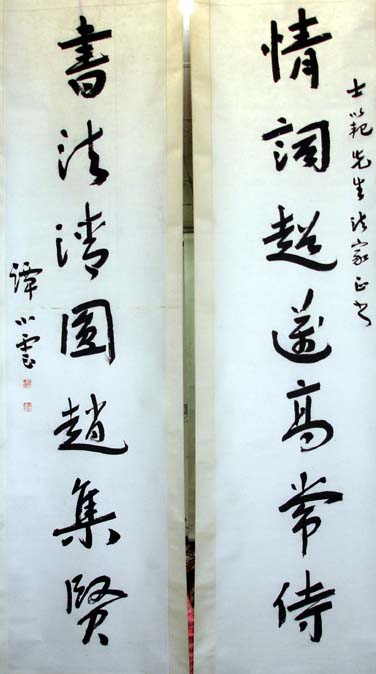 士範先生法家正
情詞超邁高常侍
書法清圓趙集賢
譚小雲